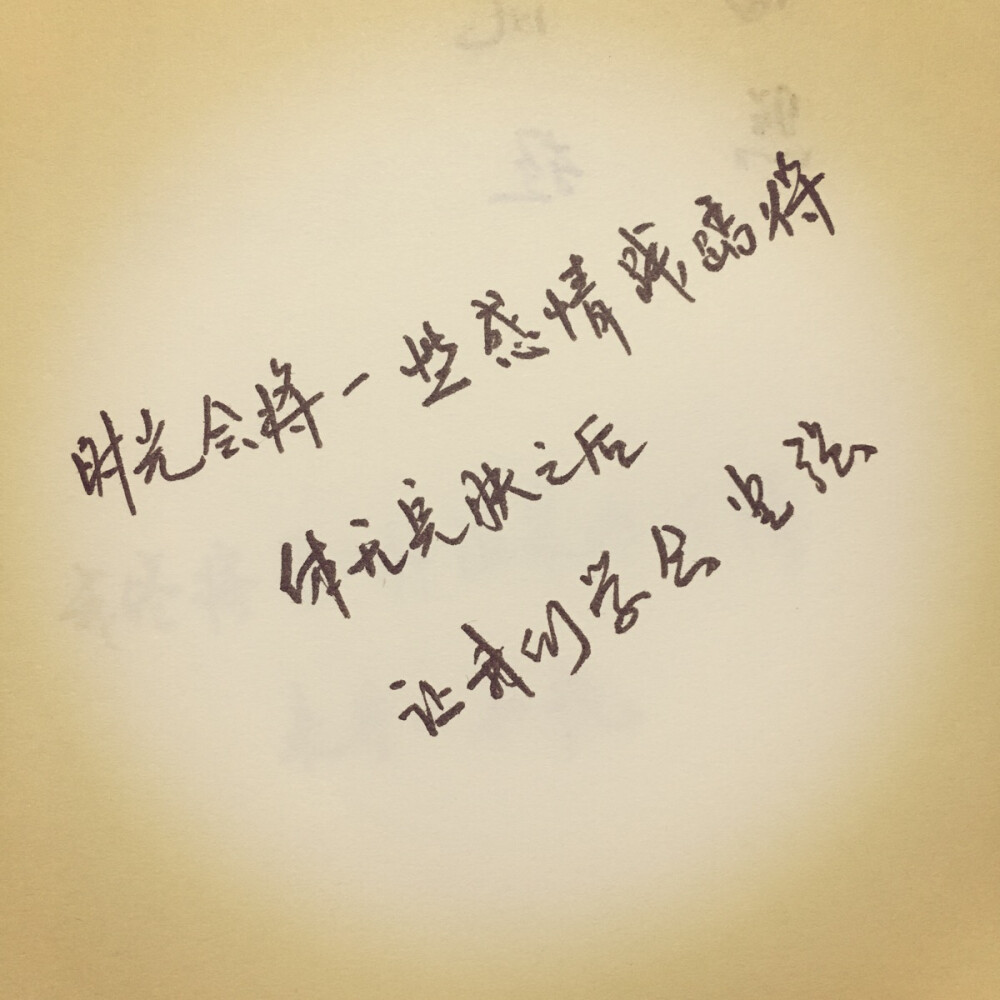 时光会将一些感情践踏将
体无完肤之后
让我们学会坚强